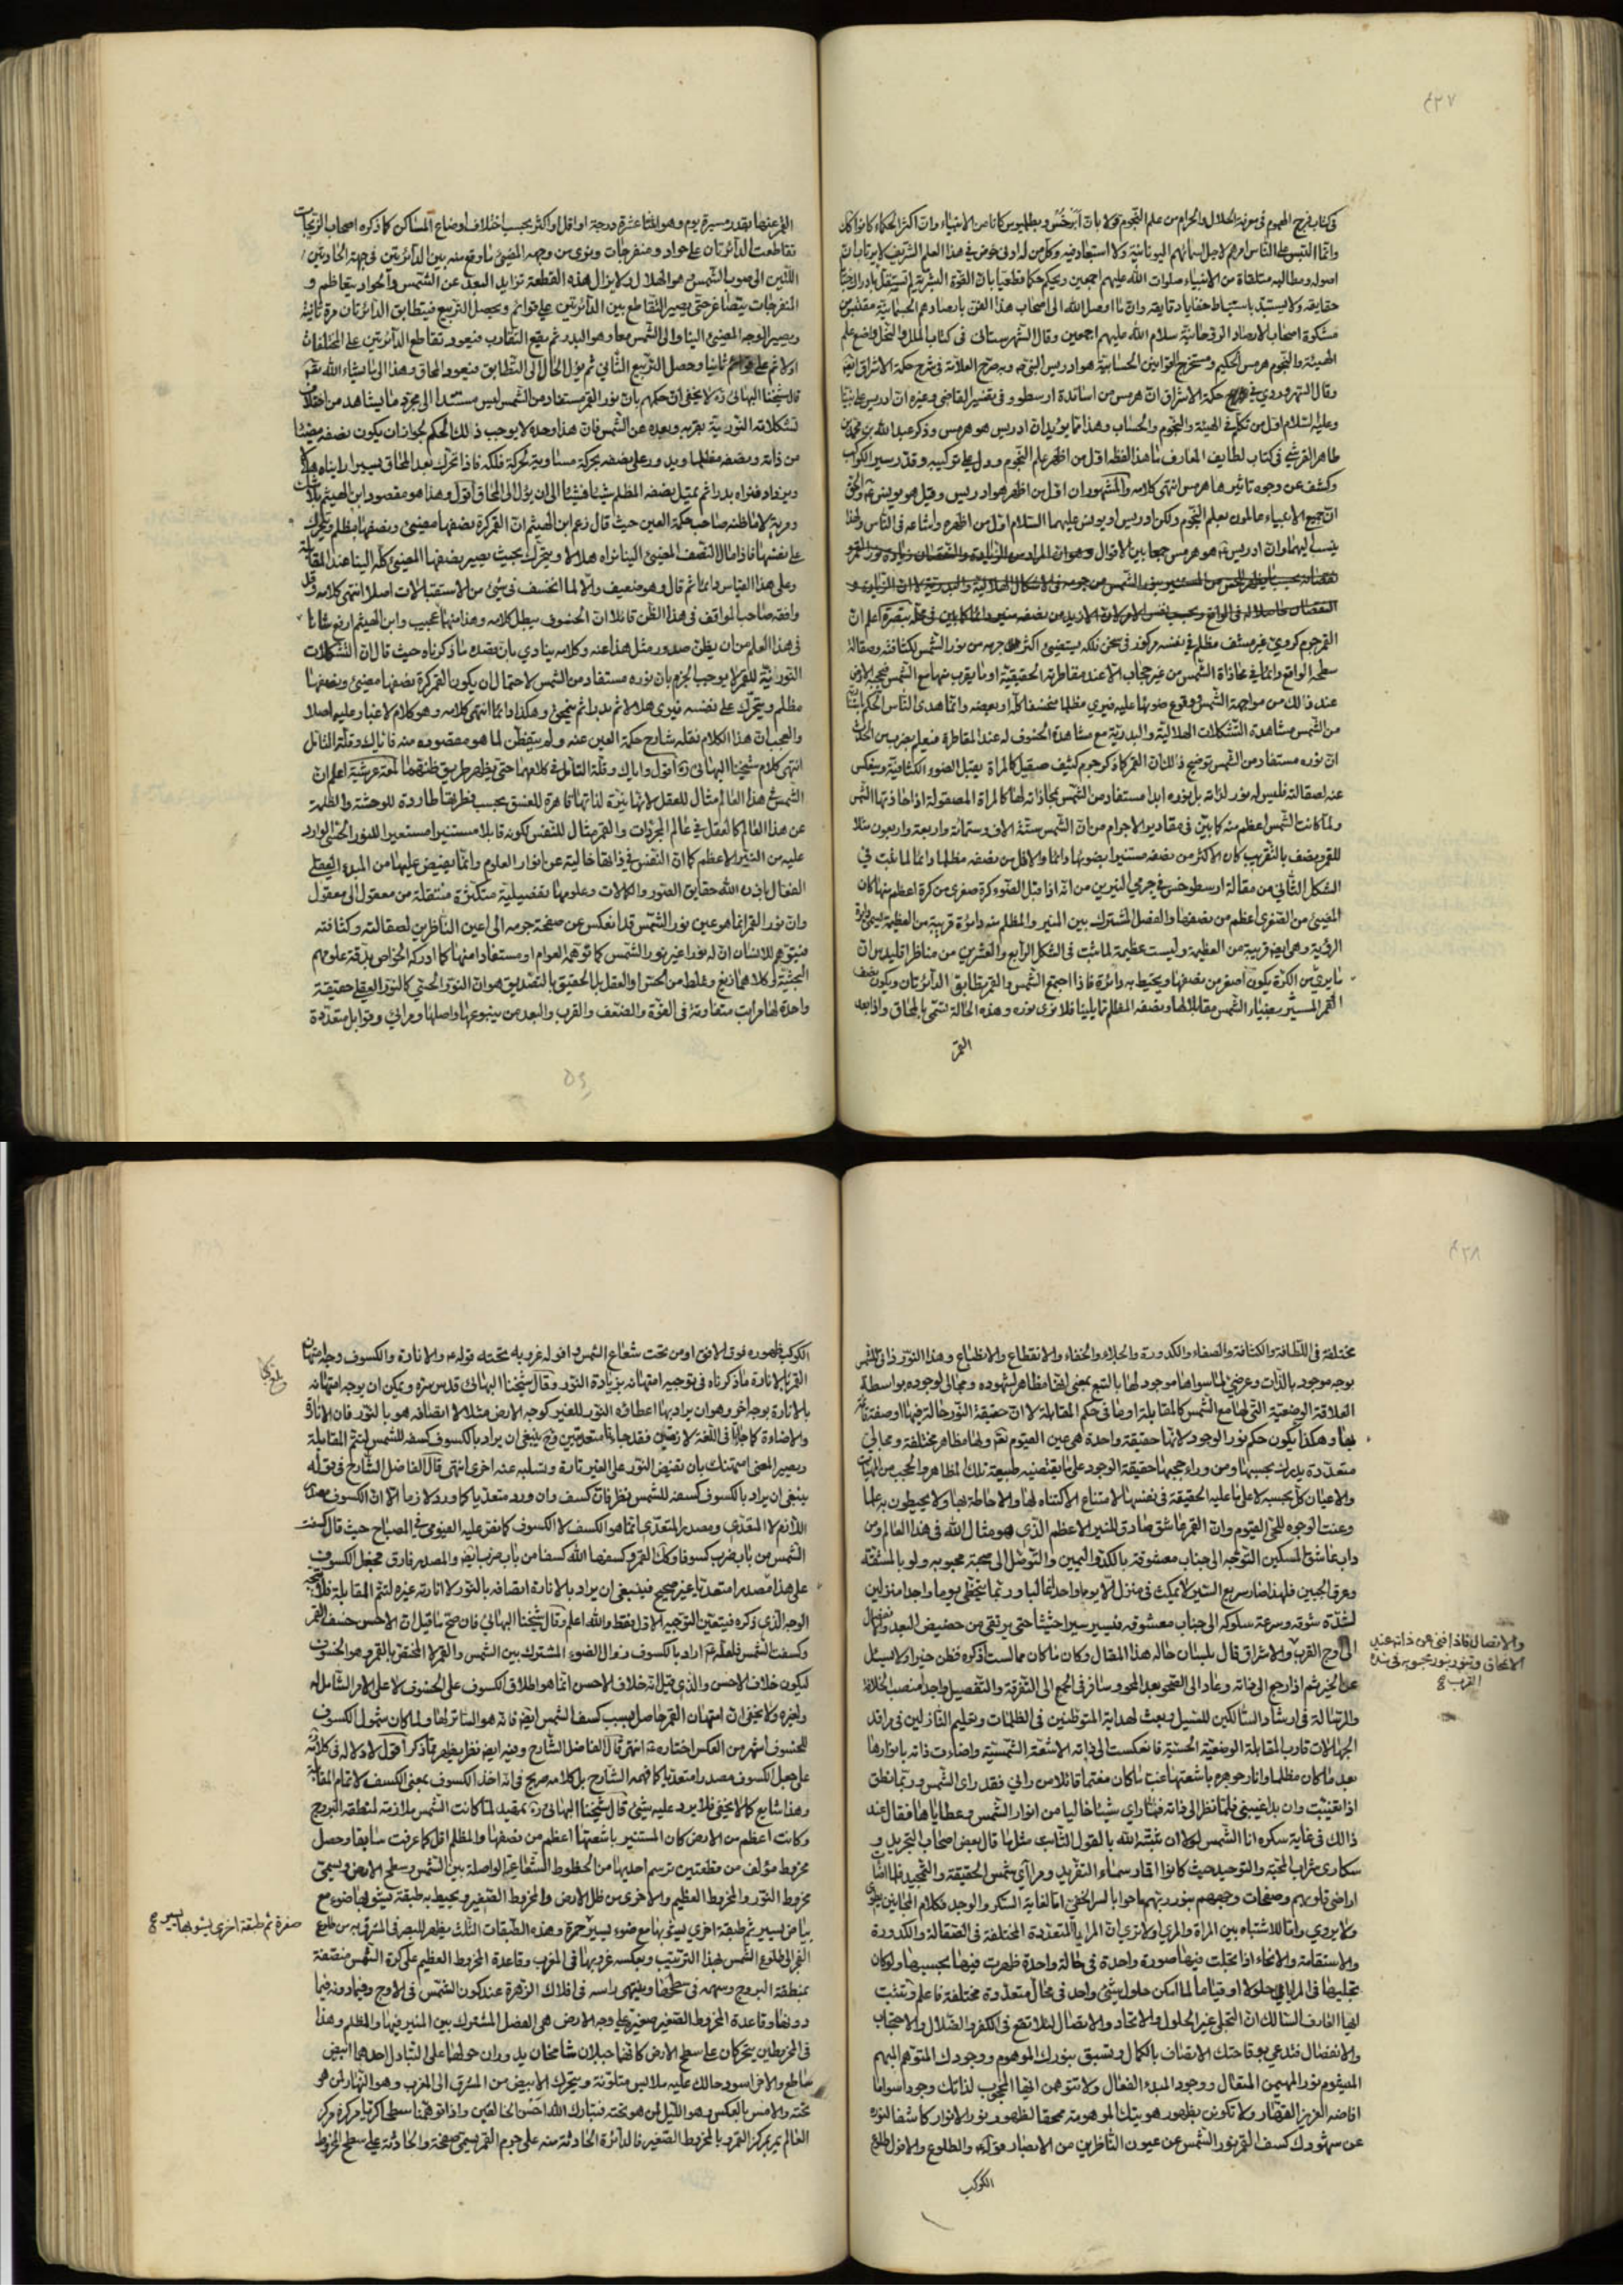 ٤٢٧
في كتاب فرج المهموم في معرفة الحلال والحرام من علم النجوم قولا بان أبرخس وبطليموس كانا من الانبياء وان اكثر الحكماء كانوا كذلك
وانما التبس على الناس امرهم لاجل اسمائهم اليونانية ولا استبعاد فيه وكل من له ادنى خوض في هذا العلم الشريف لا يرتاب ان
اصوله ومطالبه متلقاة من الانبياء صلوات الله عليهم اجمعين ويحكم حكما قطعيا بان القوة البشرية لم تستقل بادراك
حقايقه ولا يستبد باستنباط خفايا دقايقه وان ما اوصل الله الى اصحاب هذا الفن بارصادهم الجسمانية مقتبس من
مشكوة اصحاب الارصاد الروحانية سلام الله عليهم اجمعين وقال الشهرستاني في كتاب الملل والنحل واضع علم
الهيئة والنجوم هرمس الحكيم ومستخرج القوانين الحسابية هو ادريس النبي وبه صرح العلامة في شرح حكمة الاشراق
وقال الشهرزوري في حكمة الاشراق ان هرمس من اساتذة ارسطو وفي تفسير القاضي وغيره ان ادريس على نبينا
وعليه السلام اول من تكلم في الهيئة والنجوم والحساب وهذا مما يؤيد ان ادريس هو هرمس وذكر عبد الله بن محمد بن
طاهر القرشي في كتاب لطايف المعارف ما هذا لفظه اول من اظهر علم النجوم ودل على تركيبه وقدر سير الكواكب
وكشف عن وجوه تاثيرها هرمس انتهى كلامه والمشهور ان اول من اظهر هو ادريس وقيل هو يونس والحق
ان جميع الانبياء عالمون بعلم النجوم ولكن ادريس او يونس عليهما السلام اول من اظهره واشاعه في الناس ولهذا
ينسب اليهما وان ادريس هو هرمس جمعا بين الاقوال وهو ان المراد من الزيادة والنقصان زيادة نور القمر
القمر جرم كروي غير مشف مظلم في نفسه مركوز في ثخن فلكه يستضئ اكثر جرمه من نور الشمس لكثافته وصقالة
سطحه الواقع دائما في محاذاة الشمس من غير حجاب الا عند مقاطرته الحقيقية او ما يقرب منها مع الشمس فيحجبه الارض
عند ذالك من مواجهة الشمس ووقوع ضوئها عليه فيرى مظلما منخسفا كله او بعضه وانما هدى الناس الى الحكم
من الشمس مشاهدة التشكلات الهلالية والبدرية مع مشاهدة الخسوف له عند المقاطرة فيعلم بضرب من الحدس
ان نوره مستفاد من الشمس توضيح ذالك ان القمر كما ذكر جرم كثيف صقيل كالمرآة يقبل الضوء لكثافته وينعكس
عنه لصقالته فليس له نور لذاته بل نوره ابدا مستفاد من الشمس بمحاذاته لها كالمرآة المصقولة اذا حاذتها الشمس
ولما كانت الشمس اعظم منه كما بين في مقادير الاجرام من ان الشمس ستة الاف وستمائة واربعة واربعون مثلا
للقمر ونصف بالتقريب كان الاكثر من نصفه مستنيرا بضوئها دائما والاقل من نصفه مظلما دائما لما ثبت في
الشكل الثاني من مقالة ارسطرخس في جرمي النيرين من انه اذا قبل الضوء كرة صغرى من كرة اعظم منها كان
المضيئ من الصغرى اعظم من نصفها والفصل المشترك بين المنير والمظلم منه دائرة قريبة من العظيمة يسمى دائرة
الرؤية وهي ايضا قريبة من العظيمة وليست عظيمة لما ثبت في الشكل الرابع والعشرين من مناظر اقليدس ان
ما يرى من الكرة يكون اصغر من نصفها ويحيط به دائرة فاذا اجتمع الشمس والقمر تطابق الدائرتان ويكون نصف
القمر المستنير بضياء الشمس مقابلا لها ونصفه المظلم مما يلينا فلا نرى نوره وهذه الحالة تسمى بالمحاق واذا بعد
القمر
القمر عنها بقدر مسيرة يوم وهو اثنتا عشرة درجة او اقل او اكثر بحسب اختلاف اوضاع المساكن كما ذكره اصحاب الزيجات
تقاطعت الدائرتان على حواد ومنفرجات ونرى من وجهه المضيئ ما وقع منه بين الدائرتين في جهة الحادتين
اللتين الى صوب الشمس وهو الهلال ولا يزال هذه القطعة تزايد البعد عن الشمس والحواد يتعاظم و
المنفرجات يتصاغر حتى يصير التقاطع بين الدائرتين على قوائم ويحصل التربيع فيتطابق الدائرتان مرة ثانية
ويصير الوجه المضيئ الينا والى الشمس معا وهو البدر ثم يقع التقارب فيعود تقاطع الدائرتين على المختلفات
اولا ثم على قوائم ثانيا وحصل التربيع الثاني ثم يؤل الحال الى التطابق فيعود المحاق وهذا الى ما يشاء الله
قال شيخنا البهائي ره لا يخفى ان حكمهم بان نور القمر مستفاد من الشمس ليس مستندا الى مجرد ما يشاهد من اختلاف
تشكلاته النورية بقربه وبعده عن الشمس فان هذا وحده لا يوجب ذالك الحكم لجواز ان يكون نصفه مضيئا
من ذاته ونصفه مظلما ويدور على نفسه بحركة مساوية لحركة فلكه فاذا تحرك بعد المحاق يسيرا رايناه هلالا
ويزداد فنراه بدرا ثم يميل نصفه المظلم شيئا فشيئا الى ان يؤل الى المحاق اقول وهذا هو مقصود ابن الهيثم بلا شك
ومرية لا ما ظنه صاحب حكمة العين حيث قال زعم ابن الهيثم ان القمر كرة نصفها مضيئ ونصفها مظلم ويتحرك
على نفسها فاذا مال النصف المضيئ الينا نراه هلالا ويتحرك بحيث يصير نصفها المضيئ كله الينا عند المقابلة
وعلى هذا القياس دائما ثم قال وهو ضعيف والا لما انخسف في شيئ من الاستقبالات اصلا انتهى كلامه وقد
وافقه صاحب المواقف في هذا الظن قائلا ان الخسوف يبطل كلامه وهذا منهما عجيب وابن الهيثم ارفع شانا
في هذا العلم من ان يظن صدور مثل هذا عنه وكلامه ينادي بان قصده ما ذكرناه حيث قال ان التشكلات
النورية للقمر لا يوجب الجزم بان نوره مستفاد من الشمس لاحتمال ان يكون القمر كرة نصفها مضيئ ونصفها
مظلم ويتحرك على نفسه فيرى هلالا ثم بدرا ثم ينمحق وهكذا دائما انتهى كلامه وهو كلام لا غبار عليه اصلا
والعجب ان هذا الكلام نقله شارح حكمة العين عنه ولم يتفطن لما هو مقصوده منه فاياك وقلة التامل
انتهى كلام شيخنا البهائي ره اقول واياك وقلة التامل في كلامهما حتى يظهر طريق ظنهما لمعة عرشية اعلم ان
الشمس في هذا العالم مثال للعقل لانها نيرة لذاتها قاهرة للغسق بحسب فطرتها طاردة للوحشة والظلمة
عن هذا العالم كالعقل في عالم المجردات والقمر مثال للنفس لكونه قابلا مستنيرا مستعيرا للنور الحسي الوارد
عليه من النير الاعظم كما ان النفس في ذاتها خالية عن انوار العلوم وانما يفيض عليها من المبدء العقلي
الفعال باذن الله حقايق الصور والكمالات وعلومها تفصيلية متكثرة منتقلة من معقول الى معقول
وان نور القمر انما هو عين نور الشمس قد انعكس عن صفحة جرمه الى اعين الناظرين لصقالته وكثافته
فيتوهم للانسان ان له نورا غير نور الشمس كما توهمه العوام او مستفادا منها كما ادركه الخواص بدقة علومهم
البحثية وكلاهما زيغ وغلط من الحس والعقل بل الحقيق بالتصديق هو ان النور الحسي كالنور العقلي حقيقة
واحدة لها مراتب متفاوتة في القوة والضعف والقرب والبعد من ينبوعها واصلها ومرائي وقوابل متعددة
٤٢٨
مختلفة في اللطافة والكثافة والصفاء والكدورة والجلاء والخفاء والانقطاع والانطباع وهذا النور ذاتي للشمس
بوجه موجود بالذات وعرضي لما سواها موجود لها بالتبع بمعنى انها مظاهر لشهوده ومجالي لوجوده بواسطة
العلاقة الوضعية التي لها مع الشمس كالمقابلة او ما في حكم المقابلة لا ان حقيقة النور حالة فيها او صفة قائمة
بها وهكذا يكون حكم نور الوجود لانها حقيقة واحدة هي عين القيوم ولها مظاهر مختلفة ومجالي
متعددة يدرك بحسبها ومن وراء حجبها حقيقة الوجود على ما يقتضيه طبيعة تلك المظاهر والحجب من الماهيات
والاعيان كل بحسبه لا على ما عليه الحقيقة في نفسها لامتناع الاكتناه لها والاحاطة بها ولا يحيطون به علما
وعنت الوجوه للحي القيوم وان القمر عاشق صادق للنير الاعظم الذي هو مثال الله في هذا العالم ومن
داب عاشق المسكين التوجه الى جناب معشوقه بالكد واليمين والتوصل الى صحبة محبوبه ولو بالمشقة
وعرق الجبين فلهذا صار سريع السير لا يمكث في منزل الا يوما واحدا غالبا وربما يتخطى يوما واحدا منزلين
لشدة شوقه وسرعة سلوكه الى جناب معشوقه فيسير سيرا حثيثا حتى يرتقي من حضيض البعد
الى اوج القرب والاشراق قال بلسان حاله هذا المقال وكان ما كان مما لست اذكره فظن خيرا ولا تسئل
والاتصال فاذا فنى عن ذاته عند
الانمحاق وتنور بنور محبوبه في شدة
القرب
عن الخبر ثم اذا رجع الى ذاته وعاد الى الصحو بعد المحو وسافر في الجمع الى التفرقة والتفصيل وجد منصب الخلافة
والرسالة في ارشاد السالكين للسبيل وبعث لهداية المتوطنين في الظلمات وتعليم النازلين في مراقد
الجهالات قارب المقابلة الوضعية الحسية فانعكست الى ذاته الاشعة الشمسية واضاءت ذاته بانوارها
بعد ما كان مظلما وانار جوهره باشعتها غب ما كان مغتما قائلا من رآني فقد راى الشمس وربما نطق
اذا تغنيت وان بدا غيبني فلما نظر الى ذاته فما راى شيئا خاليا من انوار الشمس وعطاياها فقال عند
ذالك في غاية سكره انا الشمس لولا ان ثبته الله بالقول الثابت مثل ما قال بعض اصحاب التجريد و
سكارى شراب المحبة والتوحيد حيث كانوا اقمار سماء التفريد ومرآي شمس الحقيقة والتمجيد فلما اضاءت
اراضي قلوبهم وصفحات وجههم بنور ربهم باحوا بالسر الخفي اما لغاية السكر والوجد فكلام المجانين يطوى
ولا يروى واما للاشتباه بين المرآة والمرئي اولا ترى ان المرايا المتعددة المختلفة في الصقالة والكدورة
والاستقامة والانحاء اذا تجلت فيها صورة واحدة في حالة واحدة ظهرت فيها بحسبها ولو كان
تجليها في المرايا حلولا او قياما لما امكن حلول شيئ واحد في محال متعددة مختلفة فاعلم وتثبت
ايها العارف السالك ان التجلي غير الحلول والاتحاد والاتصال لئلا تقع في الكفر والضلال والاحتجاب
والانفصال فتدعي بوقاحتك الاتصاف بالكمال وتسبق بنورك الموهوم ووجودك المتوهم المبهم
القيوم نور المهيمن المتعال ووجود المبدء الفعال ولا تتوهمن ايها المحجوب لذاتك وجودا سوى ما
افاضه العزيز القهار ولا تكونن بظهور هويتك الموهومة محجبا لظهور نور الانوار كاشفا لنوره
عن شهودك كسف القمر نور الشمس عن عيون الناظرين من الابصار قوله والطلوع والافول طلوع
الكوكب
الكوكب ظهوره فوق الافق او من تحت شعاع الشمس وافوله غروبه تحته قوله والانارة والكسوف وجه امتهان
بلغ
القمر بالانارة ما ذكرناه في توجيه امتهانه بزيادة النور وقال شيخنا البهائي قدس سره ويمكن ان يوجه امتهانه
بالانارة بوجه اخر وهو ان يراد بها اعطائه النور للغير كوجه الارض مثلا لا اتصافه هو بالنور فان الانارة
والاضاءة كما جاءا في اللغة لازمتين فقد جاءتا متعديتين وح ينبغي ان يراد بالكسوف كسفه للشمس ليتم المقابلة
ويصير المعنى امتهنك بان تفيض النور على الغير تارة وتسلبه عنه اخرى انتهى قال الفاضل الشارح في قوله
ينبغي ان يراد بالكسوف كسفه للشمس نظر فان كسف وان ورد متعديا كما ورد لازما الا ان الكسوف مصدر
اللازم لا المتعدي ومصدر المتعدي انما هو الكسف لا الكسوف كما نص عليه الفيومي في المصباح حيث قال كسفت
الشمس من باب ضرب كسوفا وكذلك القمر وكسفها الله كسفا من باب ضرب ايضا والمصدر فارق فجعل الكسوف
على هذا مصدرا متعديا غير صحيح فينبغي ان يراد بالانارة اتصافه بالنور لا انارته غيره لتتم المقابلة فلا يتجه
الوجه الذي ذكره فيتعين التوجيه الاول فقط والله اعلم وقال شيخنا البهائي فان صح ما قيل ان الاحسن خسف القمر
وكسفت الشمس فلعله اراد بالكسوف زوال الضوء المشترك بين الشمس والقمر لا المختص بالقمر وهو الخسوف
ليكون خلاف الاحسن والذي قيل انه خلاف الاحسن انما هو اطلاق الكسوف على الخسوف لا على الامر الشامل له
ولغيره ولا يخفى ان امتهان القمر حاصل بسبب كسف الشمس ايضا فانه هو الساتر لها ولما كان شمول الكسوف
للخسوف اشهر من العكس اختاره انتهى قال الفاضل الشارح وفيه ايضا نظر يظهر مما ذكر اقول لا دلالة في كلامه
على جعل الكسوف مصدرا متعديا كما فهمه الشارح بل كلامه صريح في انه اخذ الكسوف بمعنى الكسف لاتمام المقابلة
وهذا شايع كما لا يخفى فلا يرد عليه شيئ قال شيخنا البهائي ره تمهيد لما كانت الشمس ملازمة لمنطقة البروج
وكانت اعظم من الارض كان المستنير باشعتها اعظم من نصفها والمظلم اقل كما عرفت سابقا وحصل
مخروط مؤلف من قطعتين ترسم احديهما من الخطوط الشعاعية الواصلة بين الشمس وسطح الارض ويسمى
مخروط النور والمخروط العظيم والاخرى من ظل الارض والمخروط الصغير ويحيط به طبقة يشوبها ضوء مع
بياض يسير ثم طبقة اخرى يشوبها مع ضوء يسير حمرة وهذه الطبقات الثلث يظهر للبصر في المشرق من طلوع
صفرة ثم طبقة اخرى يشوبها يسير
الفجر الى طلوع الشمس بهذا الترتيب وبعكسه غروبها في المغرب وقاعدة المخروط العظيم على كرة الشمس منصفة
بمنطقة البروج وسهمه في سطحها وينتهي راسه في افلاك الزهرة عند كون الشمس في الاوج وفيما دونه فيما
دونها وقاعدة المخروط الصغير صغيرة على وجه الارض هي الفصل المشترك بين المنير منها والمظلم وهذا
في المخروطين يتحركان على سطح الارض كانهما جبلان شامخان يدوران حولها على التبادل احدهما ابيض
ساطع والاخر اسود حالك عليه ملابس متلونة ويتحرك الابيض من المشرق الى المغرب وهو النهار لمن هو
تحته والاسود بالعكس وهو الليل لمن هو تحته فتبارك الله احسن الخالقين واذا توهمنا سطحا كريا مركزه مركز
العالم يمر بمركز القمر وبالمخروط الصغير فالدائرة الحادثة منه على جرم القمر يسمى صفحة والحادثة على سطح المخروط